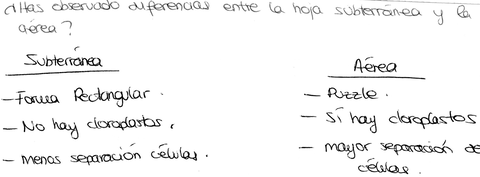 ¿Has observado diferencias entre la hoja subterránea y la
aérea?
Subterránea
- Forma Rectangular.
- No hay cloroplastos.
- menos separación células.
Aérea
- Puzzle.
- Sí hay cloroplastos
- mayor separación de
células.